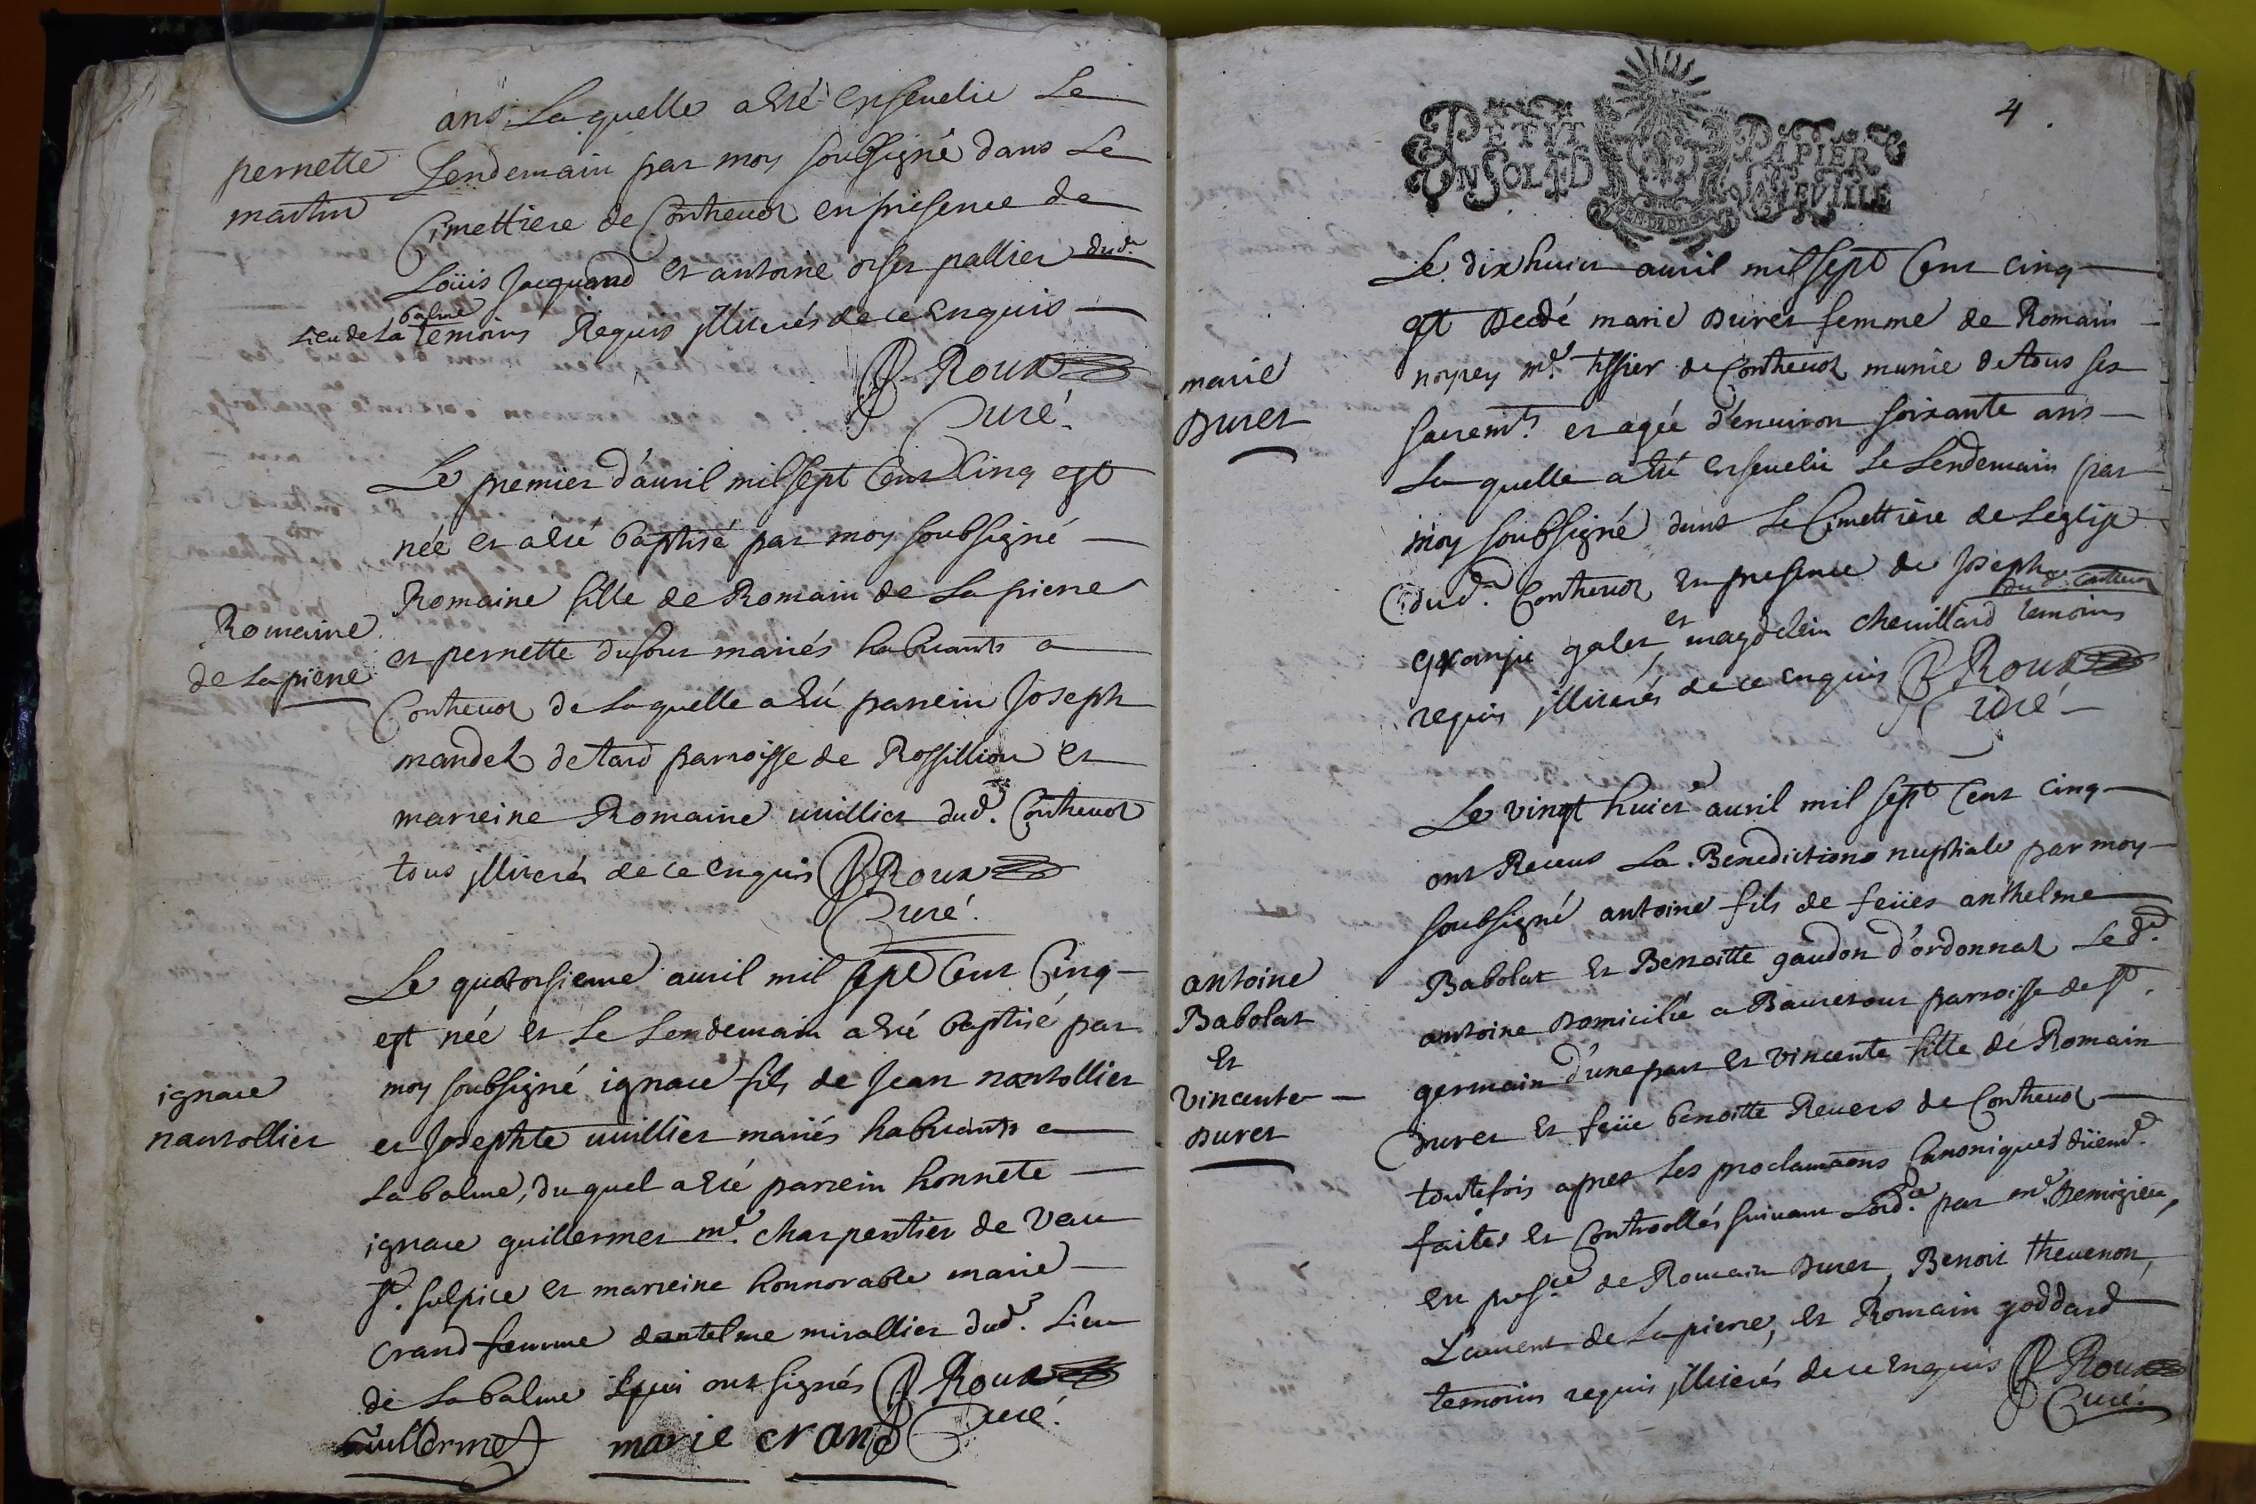 ans Laquelle a esté ensevelie Le
pernette
martin
Lendemain par moy soubsigné dans Le
Cimettiere de Contrevoz en présence de
Loüis Jacquand et antoine orset pallier dud.
Lieu de La balme temoins Requis illiterés de ce enquis
Roux
Curé.
Le premier d'avril mil sept Cent Cinq est
née et a esté baptisé par moy soubsigné
Romaine fille de Romain de La pierre
Romaine
de Lapierre
et pernette dufour mariés habitants a
Contrevoz de Laquelle a esté parrein Joseph
mandet de tard parroisse de Rossillion et
marreine Romaine vuillier dud. Contrevoz
tous illiterés de ce enquis Roux
Curé.
Le quatorsieme avril mil sept Cent Cinq
est née et Le Lendemain a esté baptisé par
moy soubsigné ignace fils de Jean nantollier
ignace
nantollier
et Josephte vuillier mariés habitants a
Labalme, du quel a esté parrein honnete
ignace guillermet m.e charpentier de Vau
st. sulpice et marreine honnorable marie
crand femme dantelme mirallier dud. Lieu
de Labalme qui ont signés Roux
Curé.
Guillermet marie crand
4
PETIT PAPIER
UN SOL 4 D LA FEVILLE
Le dixhuict avril mil sept Cent cinq
est Decedé marie Duret femme de Romain
marie
Duret
noyrey m.e tissier de Contrevoz munie de tous ses
sacremts. et agée d'environ soixante ans
La quelle a esté ensevelie Le Lendemain par
moy soubsigné dans Le Cimettiere de Leglise
dud. Contrevoz En presence de Joseph
dud. Contrevoz
granju galet, et magdelein chevillard temoins
requis illiterés de ce enquis Roux
Curé
Le vingt huict avril mil sept Cent Cinq
ont Receus La Benediction nuptiale par moy
soubsigné antoine fils de feües anthelme
Babolat Et Benoitte gaudon d'ordonnat Led.
antoine
Babolat
Et
Vincente
Duret
antoine Domicilié a parroisse de st.
germain d'une part Et Vincente fille de Romain
Duret Et feüe benoitte Revers de Contrevoz
toutefois apres Les proclamaons Canoniques düemt.
faites Et Controollés suivant Lord.ce par mr. Demigieu,
En pnsce de Romain Duret, Benoit thevenon,
Laurent de Lapierre, Et Romain goddard
temoins requis illiterés de ce Enquis Roux
Curé.